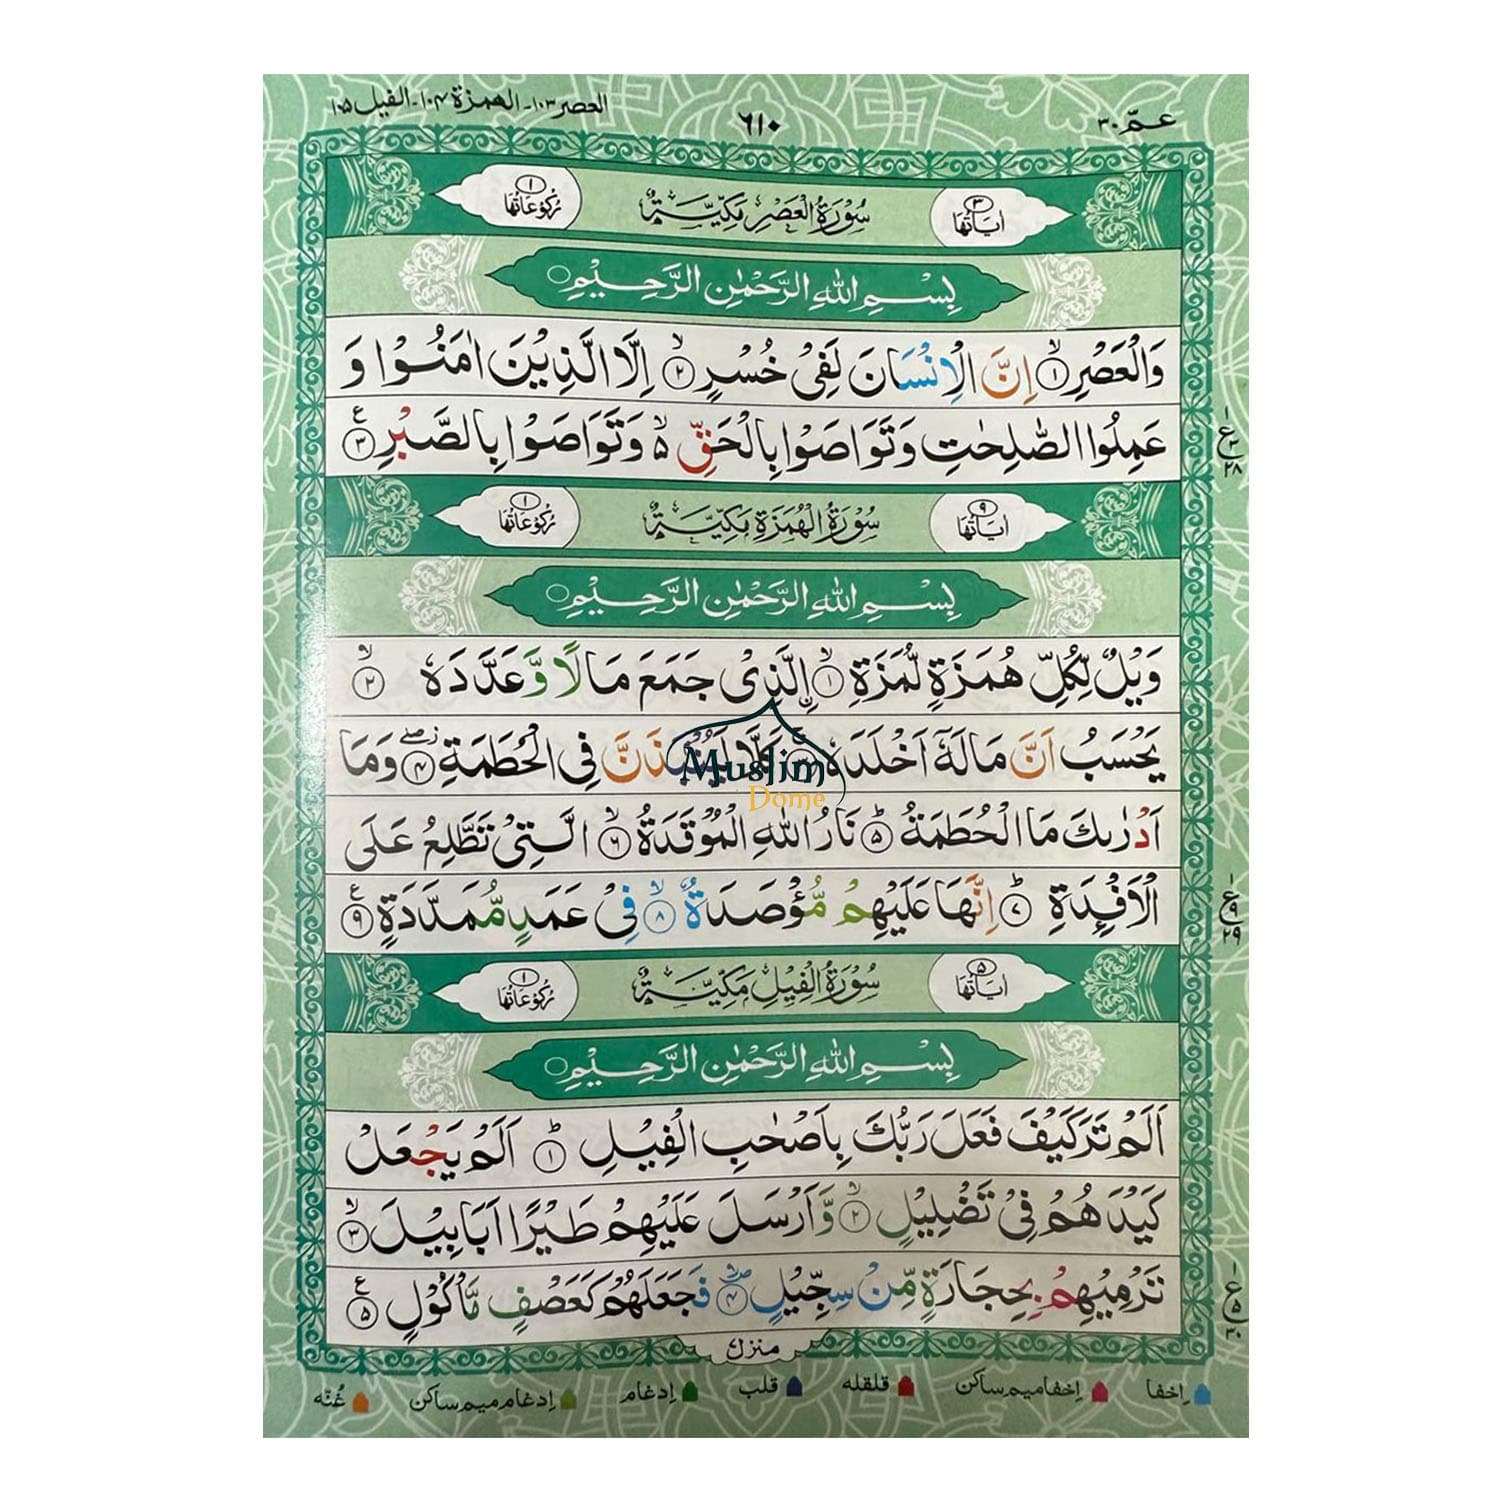 العصر ١٠٣ - الهمزة ١٠٤ - الفيل ١٠٥
٦١٠
عمّ ٣٠
اٰیَاتُهَا ٣
سُوْرَةُ الْعَصْرِ مَكِّیَّةٌ
رُكُوْعَاتُهَا ١
بِسْمِ اللّٰهِ الرَّحْمٰنِ الرَّحِیْمِ
وَالْعَصْرِ ۙ﴿١﴾ اِنَّ الْاِنْسَانَ لَفِیْ خُسْرٍ ۙ﴿٢﴾ اِلَّا الَّذِیْنَ اٰمَنُوْا وَ
عَمِلُوا الصّٰلِحٰتِ وَتَوَاصَوْا بِالْحَقِّ ۙ۬ وَتَوَاصَوْا بِالصَّبْرِ ﴿٣﴾ ع
ع
٣
٢٨
اٰیَاتُهَا ٩
سُوْرَةُ الْهُمَزَةِ مَكِّیَّةٌ
رُكُوْعَاتُهَا ١
بِسْمِ اللّٰهِ الرَّحْمٰنِ الرَّحِیْمِ
وَیْلٌ لِّكُلِّ هُمَزَةٍ لُّمَزَةِ ۙ﴿١﴾ ِ۟الَّذِیْ جَمَعَ مَالًا وَّعَدَّدَهٗ ۙ﴿٢﴾
یَحْسَبُ اَنَّ مَالَهٗۤ اَخْلَدَهٗ كَلَّا لَیُنْۢبَذَنَّ فِی الْحُطَمَةِ ﴿٤﴾ وَمَا
Muslim
Dome
اَدْرٰىكَ مَا الْحُطَمَةُ ؕ﴿٥﴾ نَارُ اللّٰهِ الْمُوْقَدَةُ ۙ﴿٦﴾ الَّتِیْ تَطَّلِعُ عَلَی
الْاَفْـِٕدَةِ ؕ﴿٧﴾ اِنَّهَا عَلَیْهِمْ مُّؤْصَدَةٌ ۙ﴿٨﴾ فِیْ عَمَدٍ مُّمَدَّدَةٍ ﴿٩﴾ ع
ع
٩
٢٩
اٰیَاتُهَا ٥
سُوْرَةُ الْفِیْلِ مَكِّیَّةٌ
رُكُوْعَاتُهَا ١
بِسْمِ اللّٰهِ الرَّحْمٰنِ الرَّحِیْمِ
اَلَمْ تَرَ كَیْفَ فَعَلَ رَبُّكَ بِاَصْحٰبِ الْفِیْلِ ؕ﴿١﴾ اَلَمْ یَجْعَلْ
كَیْدَهُمْ فِیْ تَضْلِیْلٍ ۙ﴿٢﴾ وَّاَرْسَلَ عَلَیْهِمْ طَیْرًا اَبَابِیْلَ ۙ﴿٣﴾
تَرْمِیْهِمْ بِحِجَارَةٍ مِّنْ سِجِّیْلٍ ﴿٤﴾ فَجَعَلَهُمْ كَعَصْفٍ مَّاْكُوْلٍ ﴿٥﴾ ع
ع
٥
٣٠
منزل ٧
اِخفا
اِخفا میم ساكن
قلقله
قلب
اِدغام
اِدغام میم ساكن
غُنّه